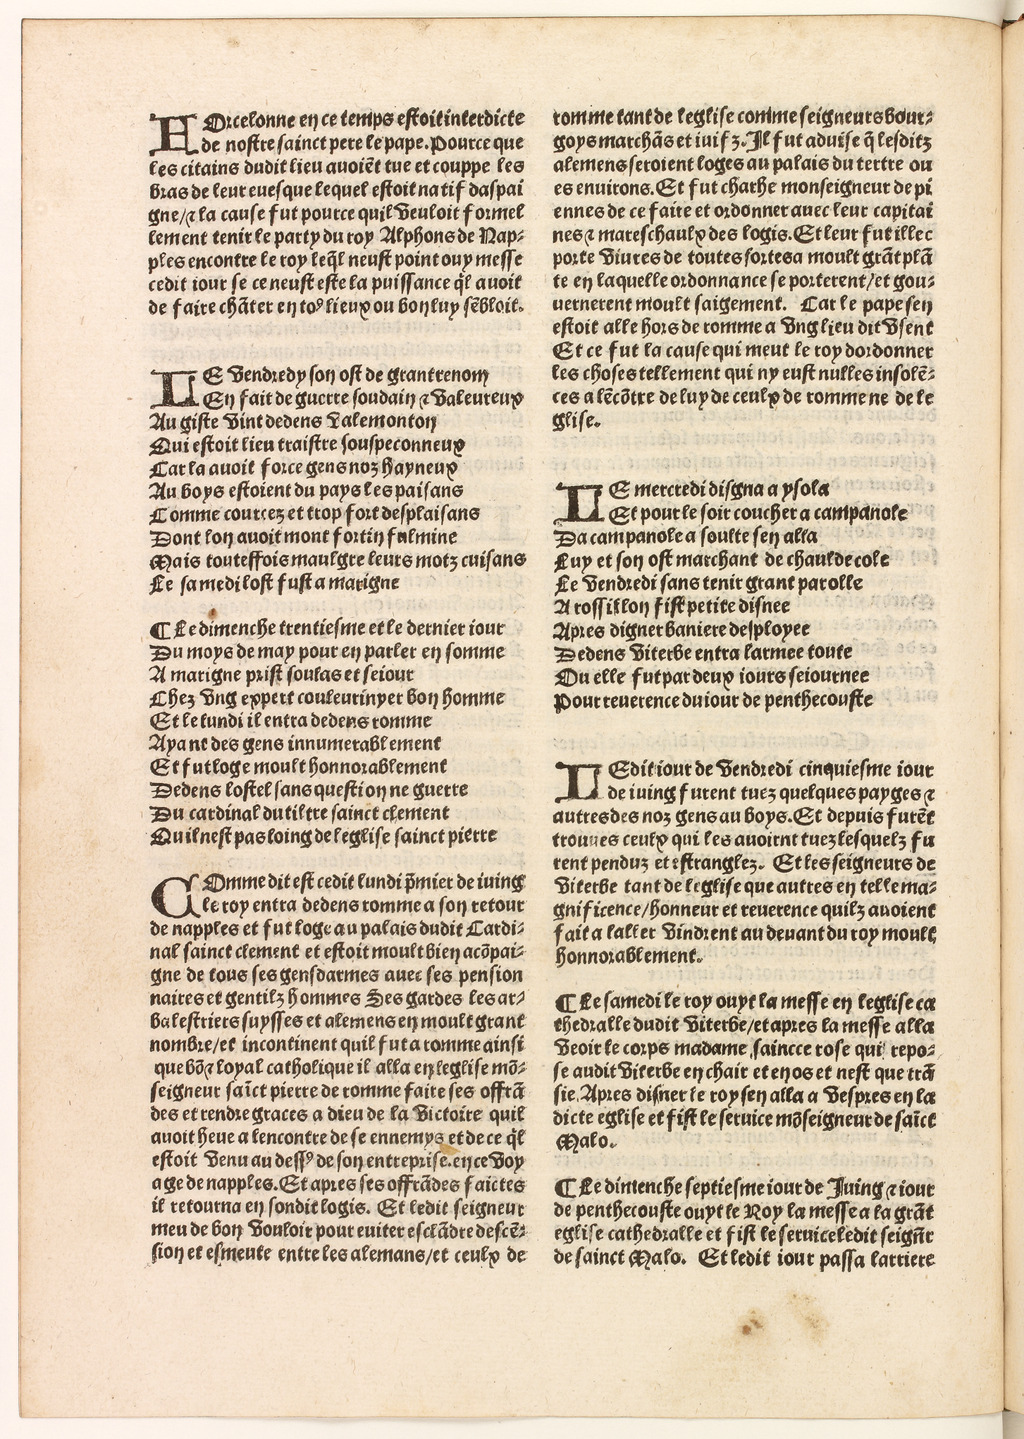 HOrcelonne en ce temps estoit interdicte
de nostre sainct pere le pape. Pource que
les citains dudit lieu auoiēt tue et couppe les
bras de leur euesque lequel estoit natif daspai
gne/⁊ la cause fut pource quil vouloit formel
lement tenir le party du roy Alphons de Nap⸗
ples encontre le roy leq̄l neust point ouy messe
cedit iour se ce neust este la puissance q̄l auoit
de faire chāter en toꝰ lieux ou bon luy sēbloit.
LE vendredy son ost de grant renom
En fait de guerre soudain ⁊ valeureux
Au giste vint dedens Valemonton
Qui estoit lieu traistre souspeconneux
Car la auoit force gens noz hayneux
Au boys estoient du pays les paisans
Comme courcez et trop fort desplaisans
Dont lon auoit mont fortin fulmine
Mais touteffois maulgre leurs motz cuisans
Le samedi lost fust a marigne
¶ Le dimenche trentiesme et le dernier iour
Du moys de may pour en parler en somme
A marigne prist soulas et seiour
Chez vng expert couleurinyer bon homme
Et le lundi il entra dedens romme
Ayant des gens innumerablement
Et fut loge moult honnorablement
Dedens lostel sans question ne guerre
Du cardinal du tiltre sainct clement
Qui nest pas loing de leglise sainct pierre
COmme dit est cedit lundi p̄mier de iuing
le roy entra dedens romme a son retour
de napples et fut loge au palais dudit Cardi⸗
nal sainct clement et estoit moult bien acōpai⸗
gne de tous ses gensdarmes auec ses pension
naires et gentilz hommes Ses gardes les ar⸗
balestriers suysses et alemens en moult grant
nombre/et incontinent quil fut a romme ainsi
que bō ⁊ loyal catholique il alla en leglise mō⸗
seigneur saīct pierre de romme faire ses offrā
des et rendre graces a dieu de la victoire quil
auoit heue a lencontre de se ennemys et de ce q̄l
estoit venu au dessꝰ de son entreprise. en ce voy
age de napples. Et apres ses offrādes faictes
il retourna en sondit logis. Et ledit seigneur
meu de bon vouloir pour euiter esclādre descē⸗
sion et esmeute entre les alemans/et ceulx de
romme tant de leglise comme seigneurs bour⸗
goys marchās et iuifz. Il fut aduise q̄ lesditz
alemens seroient loges au palais du tertre ou
es enuirons. Et fut charhe monseigneur de pi
ennes de ce faire et ordonner auec leur capitai
nes ⁊ mareschaulx des logis. Et leur fut illec
porte viures de toutes sortes a moult grāt plā
te en laquelle ordonnance se porterent/et gou⸗
uernerent moult saigement. Car le pape sen
estoit alle hors de romme a vng lieu dit vsent
Et ce fut la cause qui meut le roy dordonner
les choses tellement qui ny eust nulles insolē⸗
ces a lēcōtre de luy de ceulx de romme ne de le
glise.
LE mercredi disgna a ysola
Et pour le soir coucher a campanole
Da campanole a soulte sen alla
Luy et son ost marchant de chaulde cole
Le vendredi sans tenir grant parolle
A rossillon fist petite disnee
Apres digner baniere desployee
Dedens viterbe entra larmee toute
Ou elle fut par deux iours seiournee
Pour reuerence du iour de penthecouste
LEdit iour de vendredi cinquiesme iour
de iuing furent tuez quelques payges ⁊
autres des noz gens au boys. Et depuis furēt
trouues ceulx qui les auoirnt tuez lesquelz fu
rent penduz et estranglez. Et les seigneurs de
viterbe tant de leglise que autres en telle ma⸗
gnificence/honneur et reuerence quilz auoient
fait a laller vindrent au deuant du roy moult
honnorablement.
¶ Le samedi le roy ouyt la messe en leglise ca
thedralle dudit viterbe/et apres la messe alla
veoir le corps madame saincce rose qui repo⸗
se audit viterbe en chair et en os et nest que trā
sie. Apres disner le roy sen alla a vespres en la
dicte eglise et fist le seruice mōseigneur de saīct
Malo.
¶ Le dimenche septiesme iour de Iuing ⁊ iour
de penthecouste ouyt le Roy la messe a la grāt
eglise cathedralle et fist le seruice ledit seign̄r
de sainct Malo. Et ledit iour passa larriere